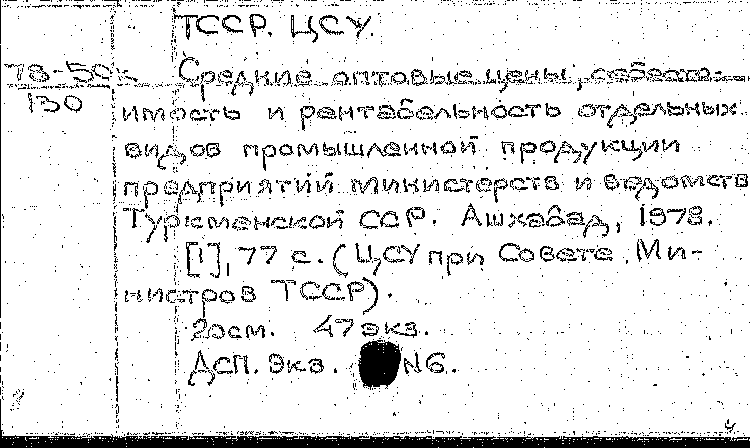 ТССР. ЦСУ.
78-50к Средние оптовые цены, себесто-
130
имость и рентабельность отдельных
видов промышленной продукции
предприятий министерств и ведомств
Туркменской ССР. Ашхабад, 1978.
[1], 77 с. (ЦСУ при Совете Ми-
нистров ТССР).
20см. 47 экз.
ДСП. Экз. N6.